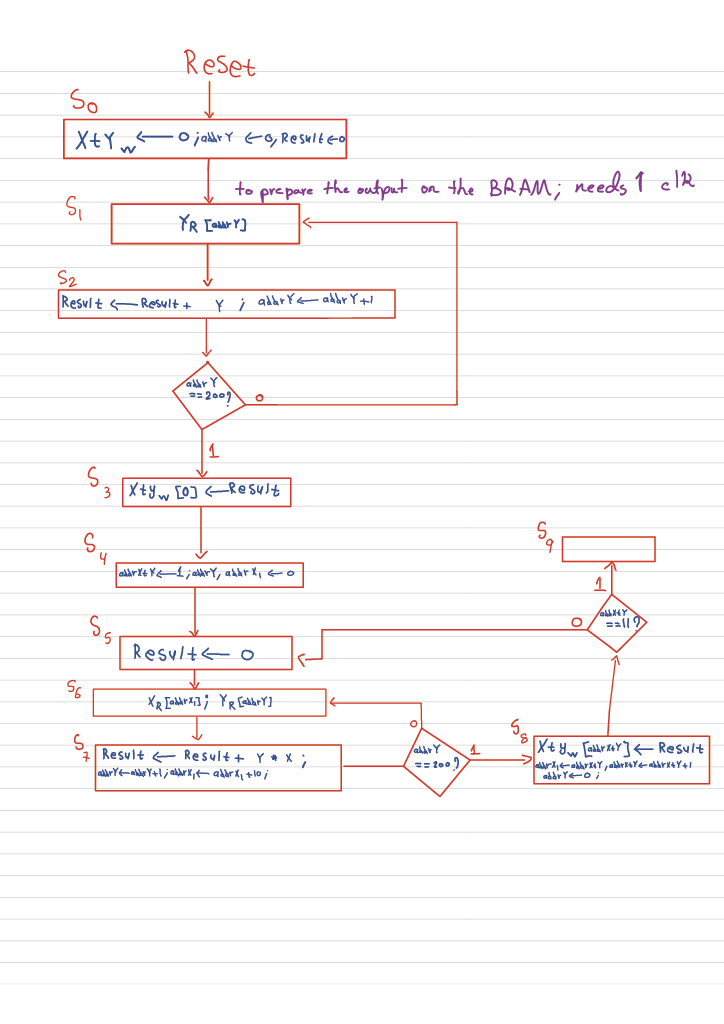 Reset
S0
XtYw ← 0 ; addrY ← 0, Result ← 0
to prepare the output on the BRAM; needs 1 clk
S1
YR [addrY]
S2
Result ← Result + Y ; addrY ← addrY+1
addrY
==200?
0
1
S3
Xtyw [0] ← Result
S9
S4
addrXtY ← 1 ; addrY, addrX1 ← 0
1
addXtY
==11?
0
S5
Result ← 0
S6
XR [addrX1] ; YR [addrY]
0
S7
Result ← Result + Y * X ;
addrY ← addrY+1 ; addrX1 ← addrX1 +10 ;
addrY
==200?
1
S8
Xtyw [addrXtY] ← Result
addrX1 ← addrXtY, addrXtY ← addrXtY+1
addrY ← 0 ;